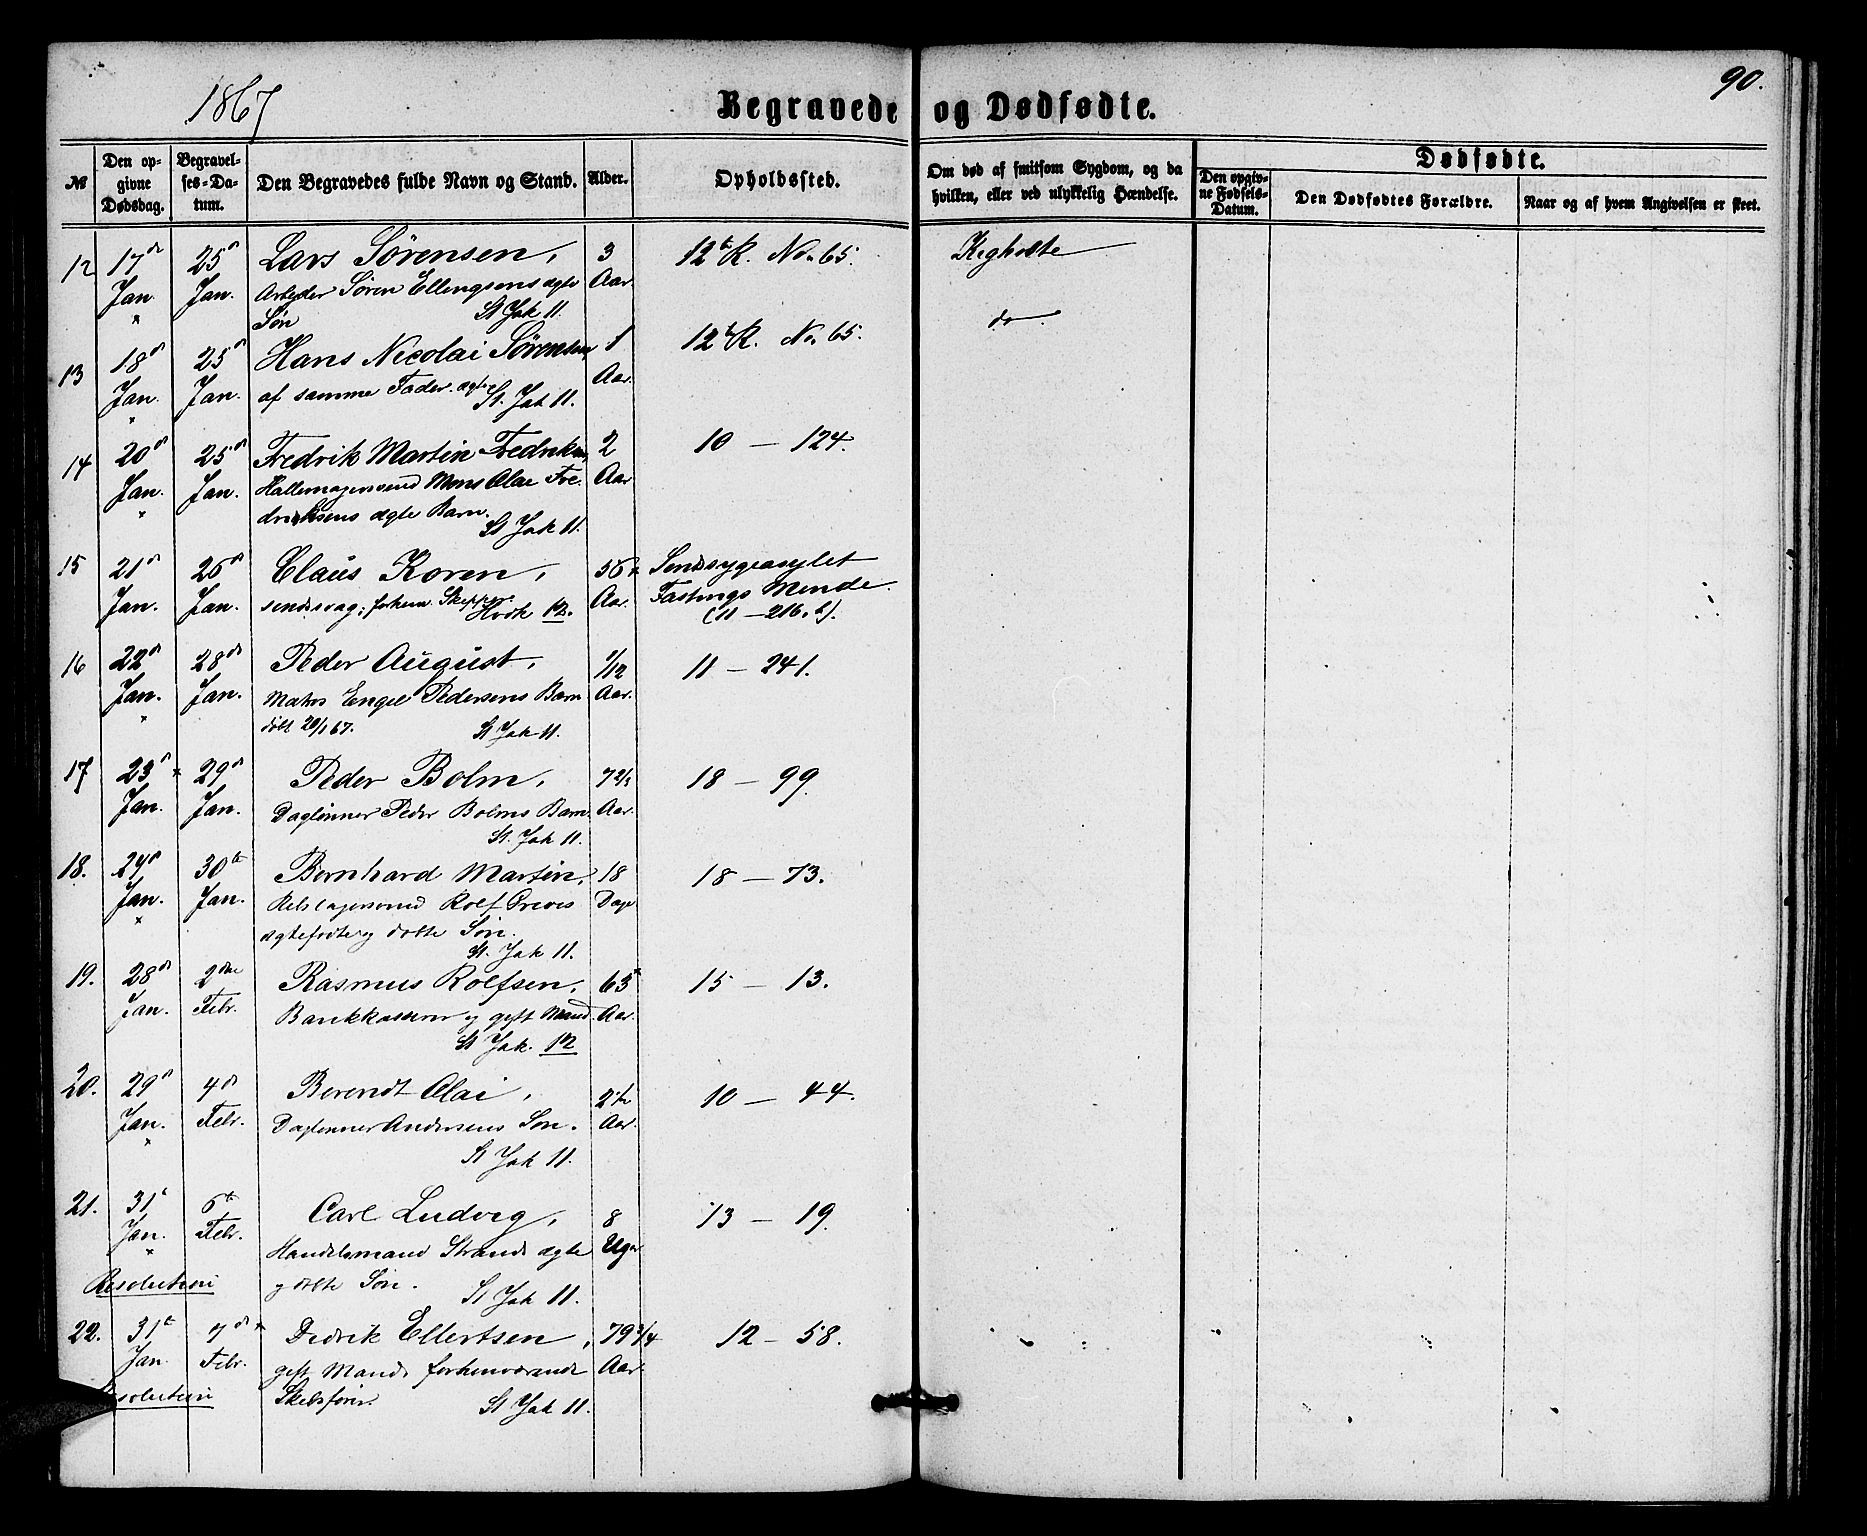 1867
Begravede og Dødfødte.
90.
№
Den opgivne Dødsdag.
Begravelses-Datum.
Den Begravedes fulde Navn og Stand.
Alder.
Opholdssted.
Om død af smitsom Sygdom, og da hvilken, eller ved ulykkelig Hændelse.
Dødfødte.
Den opgivne Fødsels-Datum.
Den Dødfødtes Forældre.
Naar og af hvem Angivelsen er skeet.
12 17de 25de Lars Sørensen, 3 12te R. No. 65. Kighoste
Jan. Jan. Arbeider Søren Ellingsens ægte Aar.
Søn St Jak 11.
13 18de 25de Hans Nicolai Sørensen 1 12te R. No. 65. do.
Jan. Jan. af samme Fader. ægte Aar.
St. Jak 11.
14 20de 25de Fredrik Martin Fredriksen, 2 10 — 124.
Jan. Jan. Mons Olai Fre- Aar
driksens ægte Barn.
St Jak 11.
15 21de 26de Claus Koren, 56 Sindssygeasylet
Jan. Jan. sindssvag; forhen. Skipper. Aar. Fastings Minde.
Hvdk 12. (11 — 216. b).
16 22de 28de Peder August, 1/12 11 — 241.
Jan. Jan. Matros Engel Pedersens Barn Aar.
døbt 20/1 67. St Jak 11.
17 23de 29de Peder Bolm, 7 2/3 18 — 99.
Jan. Jan. Daglønner Peder Bolms Barn Aar.
St. Jak 11.
18. 24de 30te Bernhard Martin, 18 18 — 73.
Jan. Jan. Rebslagersvend Rolf Greves Dage
ægtefødte og døbte Søn.
St. Jak 11.
19. 28de 2den Rasmus Rolfsen, 63 15 — 13.
Jan. Febr. Bankkasserer og gift Mand. Aar.
St Jak. 12
20. 29de 4de Berendt Olai, 2 1/2 10 — 44.
Jan. Febr. Daglønner Andersens Søn. Aar.
St Jak 11.
21. 31te 6te Carl Ludvig, 8 13 — 19.
Jan. Febr. Handelsmand Strands ægte Uger
Resolution og døbte Søn. St Jak 11.
22. 31te 7de Didrik Ellertsen, 79 3/4 12 — 58.
Jan. Febr. gift Mand, forhenværende Aar.
Resolution Skibsfører. St Jak 11.